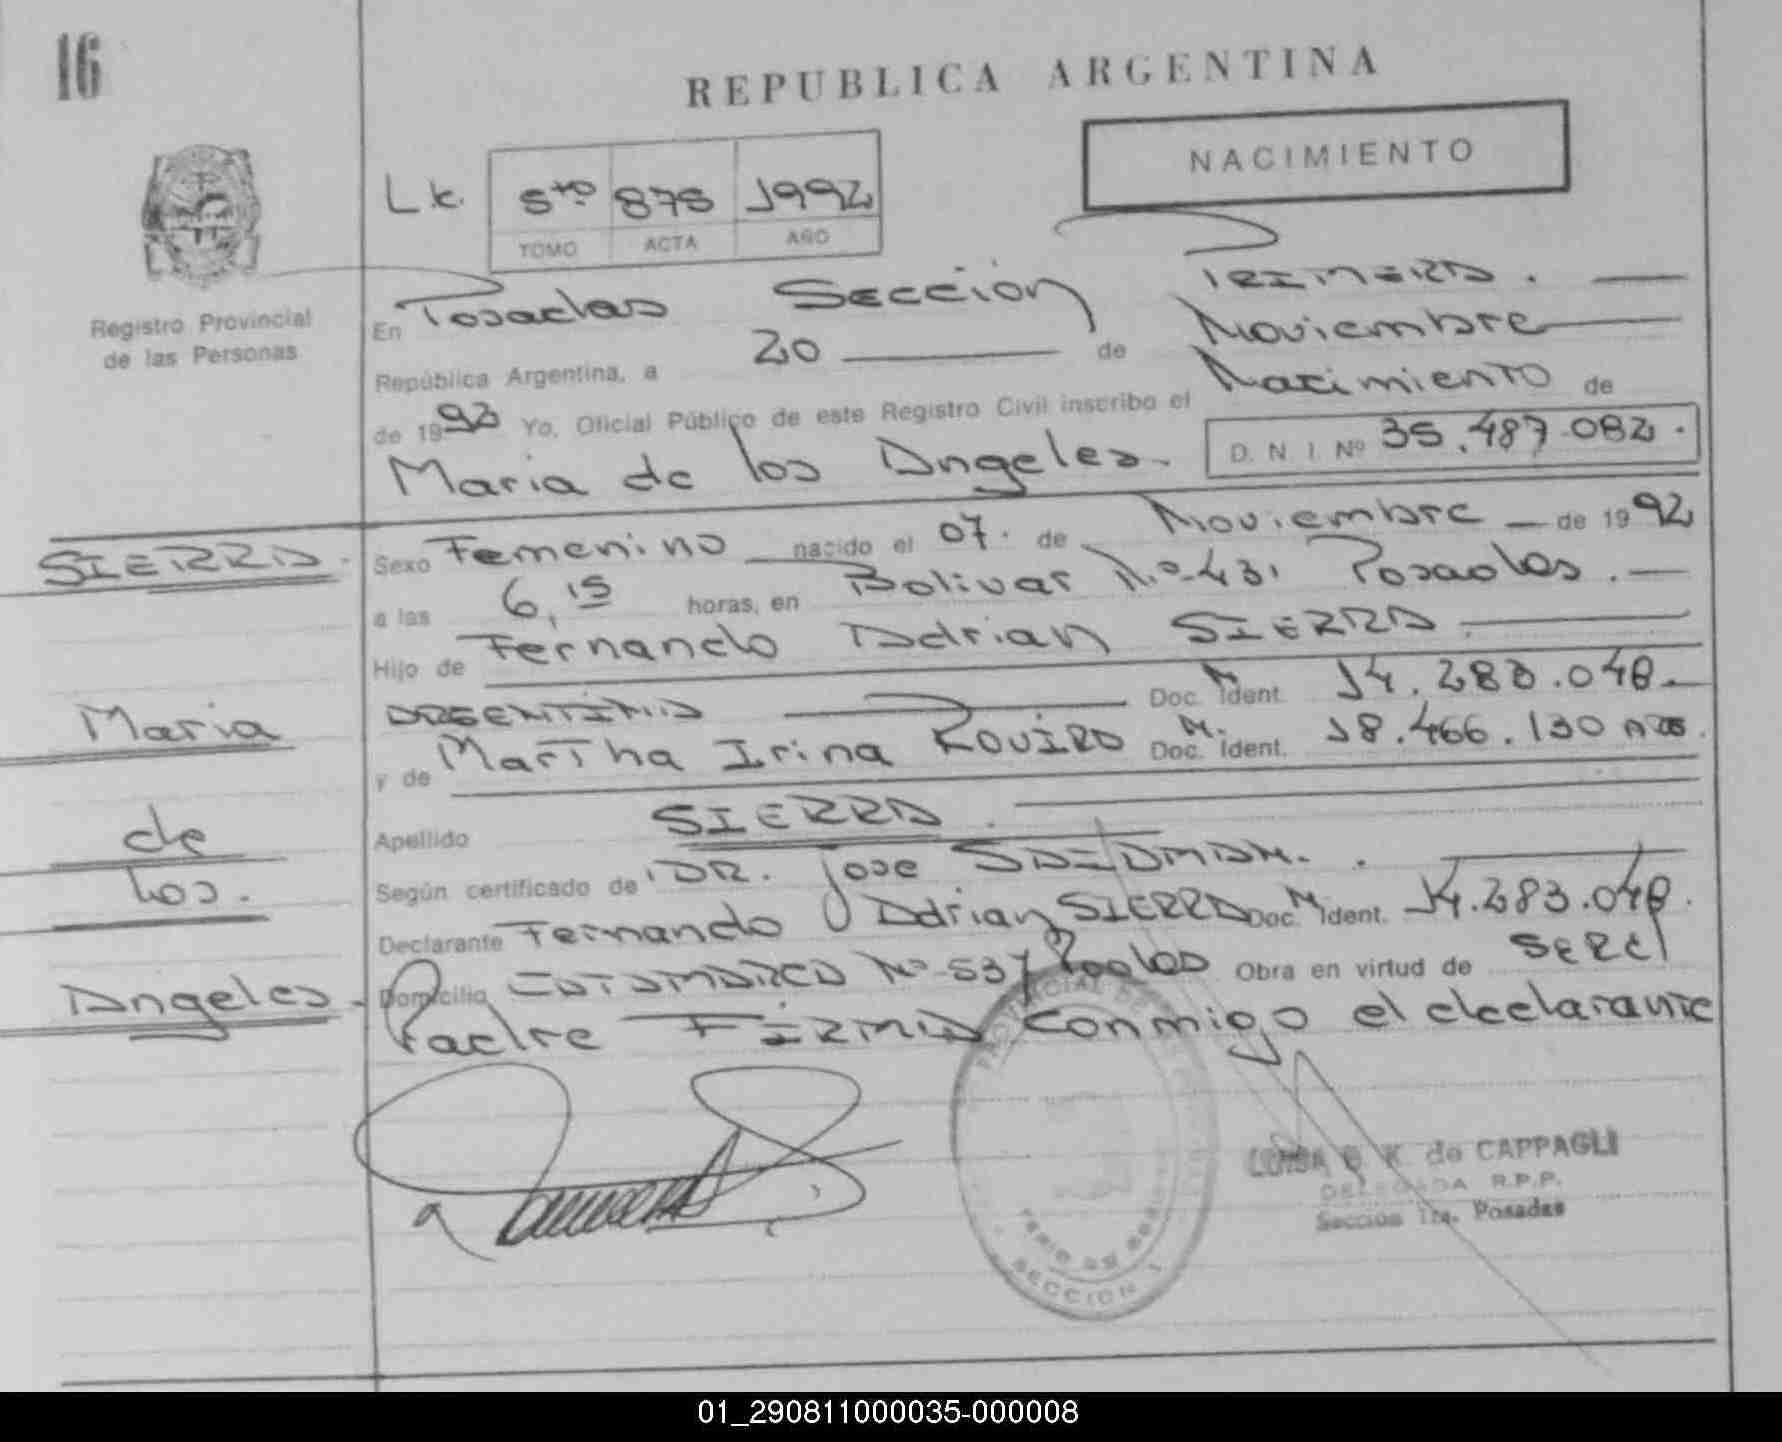 16
REPUBLICA ARGENTINA
NACIMIENTO
Lk. 5to 875 1992
TOMO ACTA AÑO
Registro Provincial
de las Personas
En Posadas Sección Primera.
República Argentina, a 20 de Noviembre
de 1992 Yo, Oficial Público de este Registro Civil inscribo el Nacimiento de
Maria de los Angeles. D. N. I. Nº 35.487.082.
SIERRA.
Sexo Femenino nacido el 07. de Noviembre de 1992
a las 6,15 horas, en Bolivar Nº 431 Posadas.
Hijo de Fernando Adrian SIERRA
Maria
ARGENTINA Doc. M. Ident. 14.283.048.
y de Martha Irina ROVIRA Doc. M. Ident. 18.466.130
de
Apellido SIERRA.
Los.
Según certificado de DR. Jose
Declarante Fernando Adrian SIERRA Doc. M. Ident. 14.283.048.
Angeles.
Domicilio CATAMARCA Nº 537 Obra en virtud de SER el
Padre FIRMA conmigo el declarante
PROVINCIAL DE
SECCION 1
de CAPPAGLI
DELEGADA R.P.P.
Sección 1ra. Posadas
01_290811000035-000008